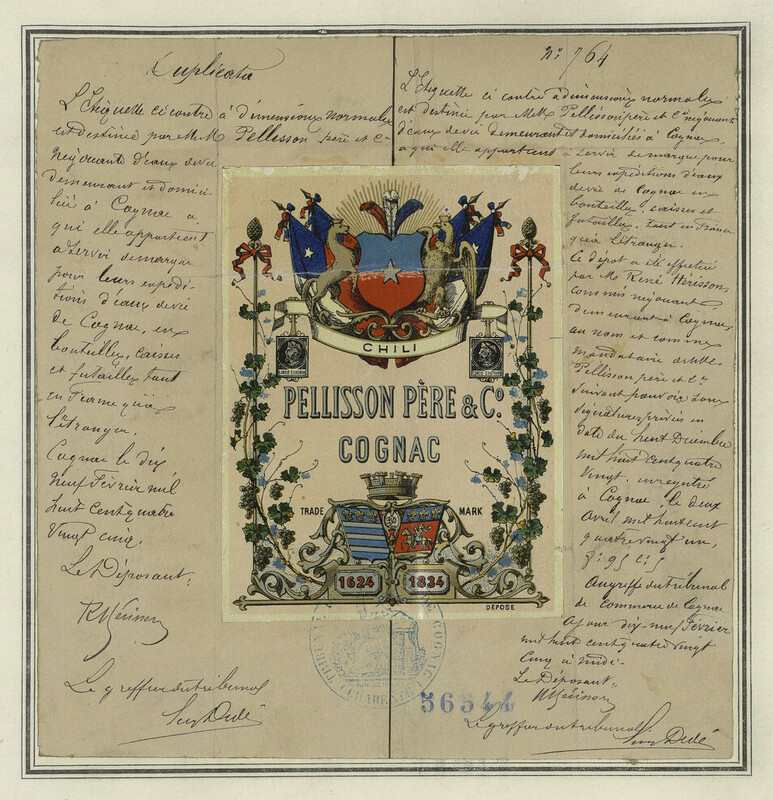 Duplicata
L'Etiquette ci contre à dimensions normales
est destinée par M.M. Pellisson père et Cie
négociants d'eaux de vie
demeurant et domici-
liés à Cognac a
qui elle appartient
à servir de marque
pour leurs expédi-
tions d'eaux de vie
de Cognac, en
bouteilles, caisses
et futailles tant
en France qu'à
l'étranger.
Cognac le dix
neuf Février mil
huit cent quatre
vingt cinq.
Le Déposant,
R Hérisson
Le greffier du tribunal
Didé
No 764
L'Etiquette ci contre à dimensions normales
est destinée par M.M. Pellisson père et Cie négociants
d'eaux de vie demeurant et domiciliés à Cognac,
a qui elle appartient à servir de marque pour
leurs expéditions d'eaux
de vie de Cognac en
bouteilles, caisses et
futailles, tant en France
qu'à l'étranger.
Ce dépôt a été effectué
par M. René Hérisson
commis négociant,
demeurant à Cognac
au nom et comme
mandataire de MM.
Pellisson père et Cie
suivant pouvoir sous
signatures privées en
date du huit Décembre
mil huit cent quatre
vingt. enregistré
à Cognac le deux
Avril mil huit cent
quatre vingt un,
Au greffe du tribunal
de commerce de Cognac
ce jour dix-neuf Février
mil huit cent quatre vingt
cinq à midi.
Le Déposant,
R Hérisson
Le greffier du tribunal
Didé
CHILI
PELLISSON PÈRE & Co.
COGNAC
TRADE MARK
1624 1834
DÉPOSÉ
COGNAC
CHARENTE
56544